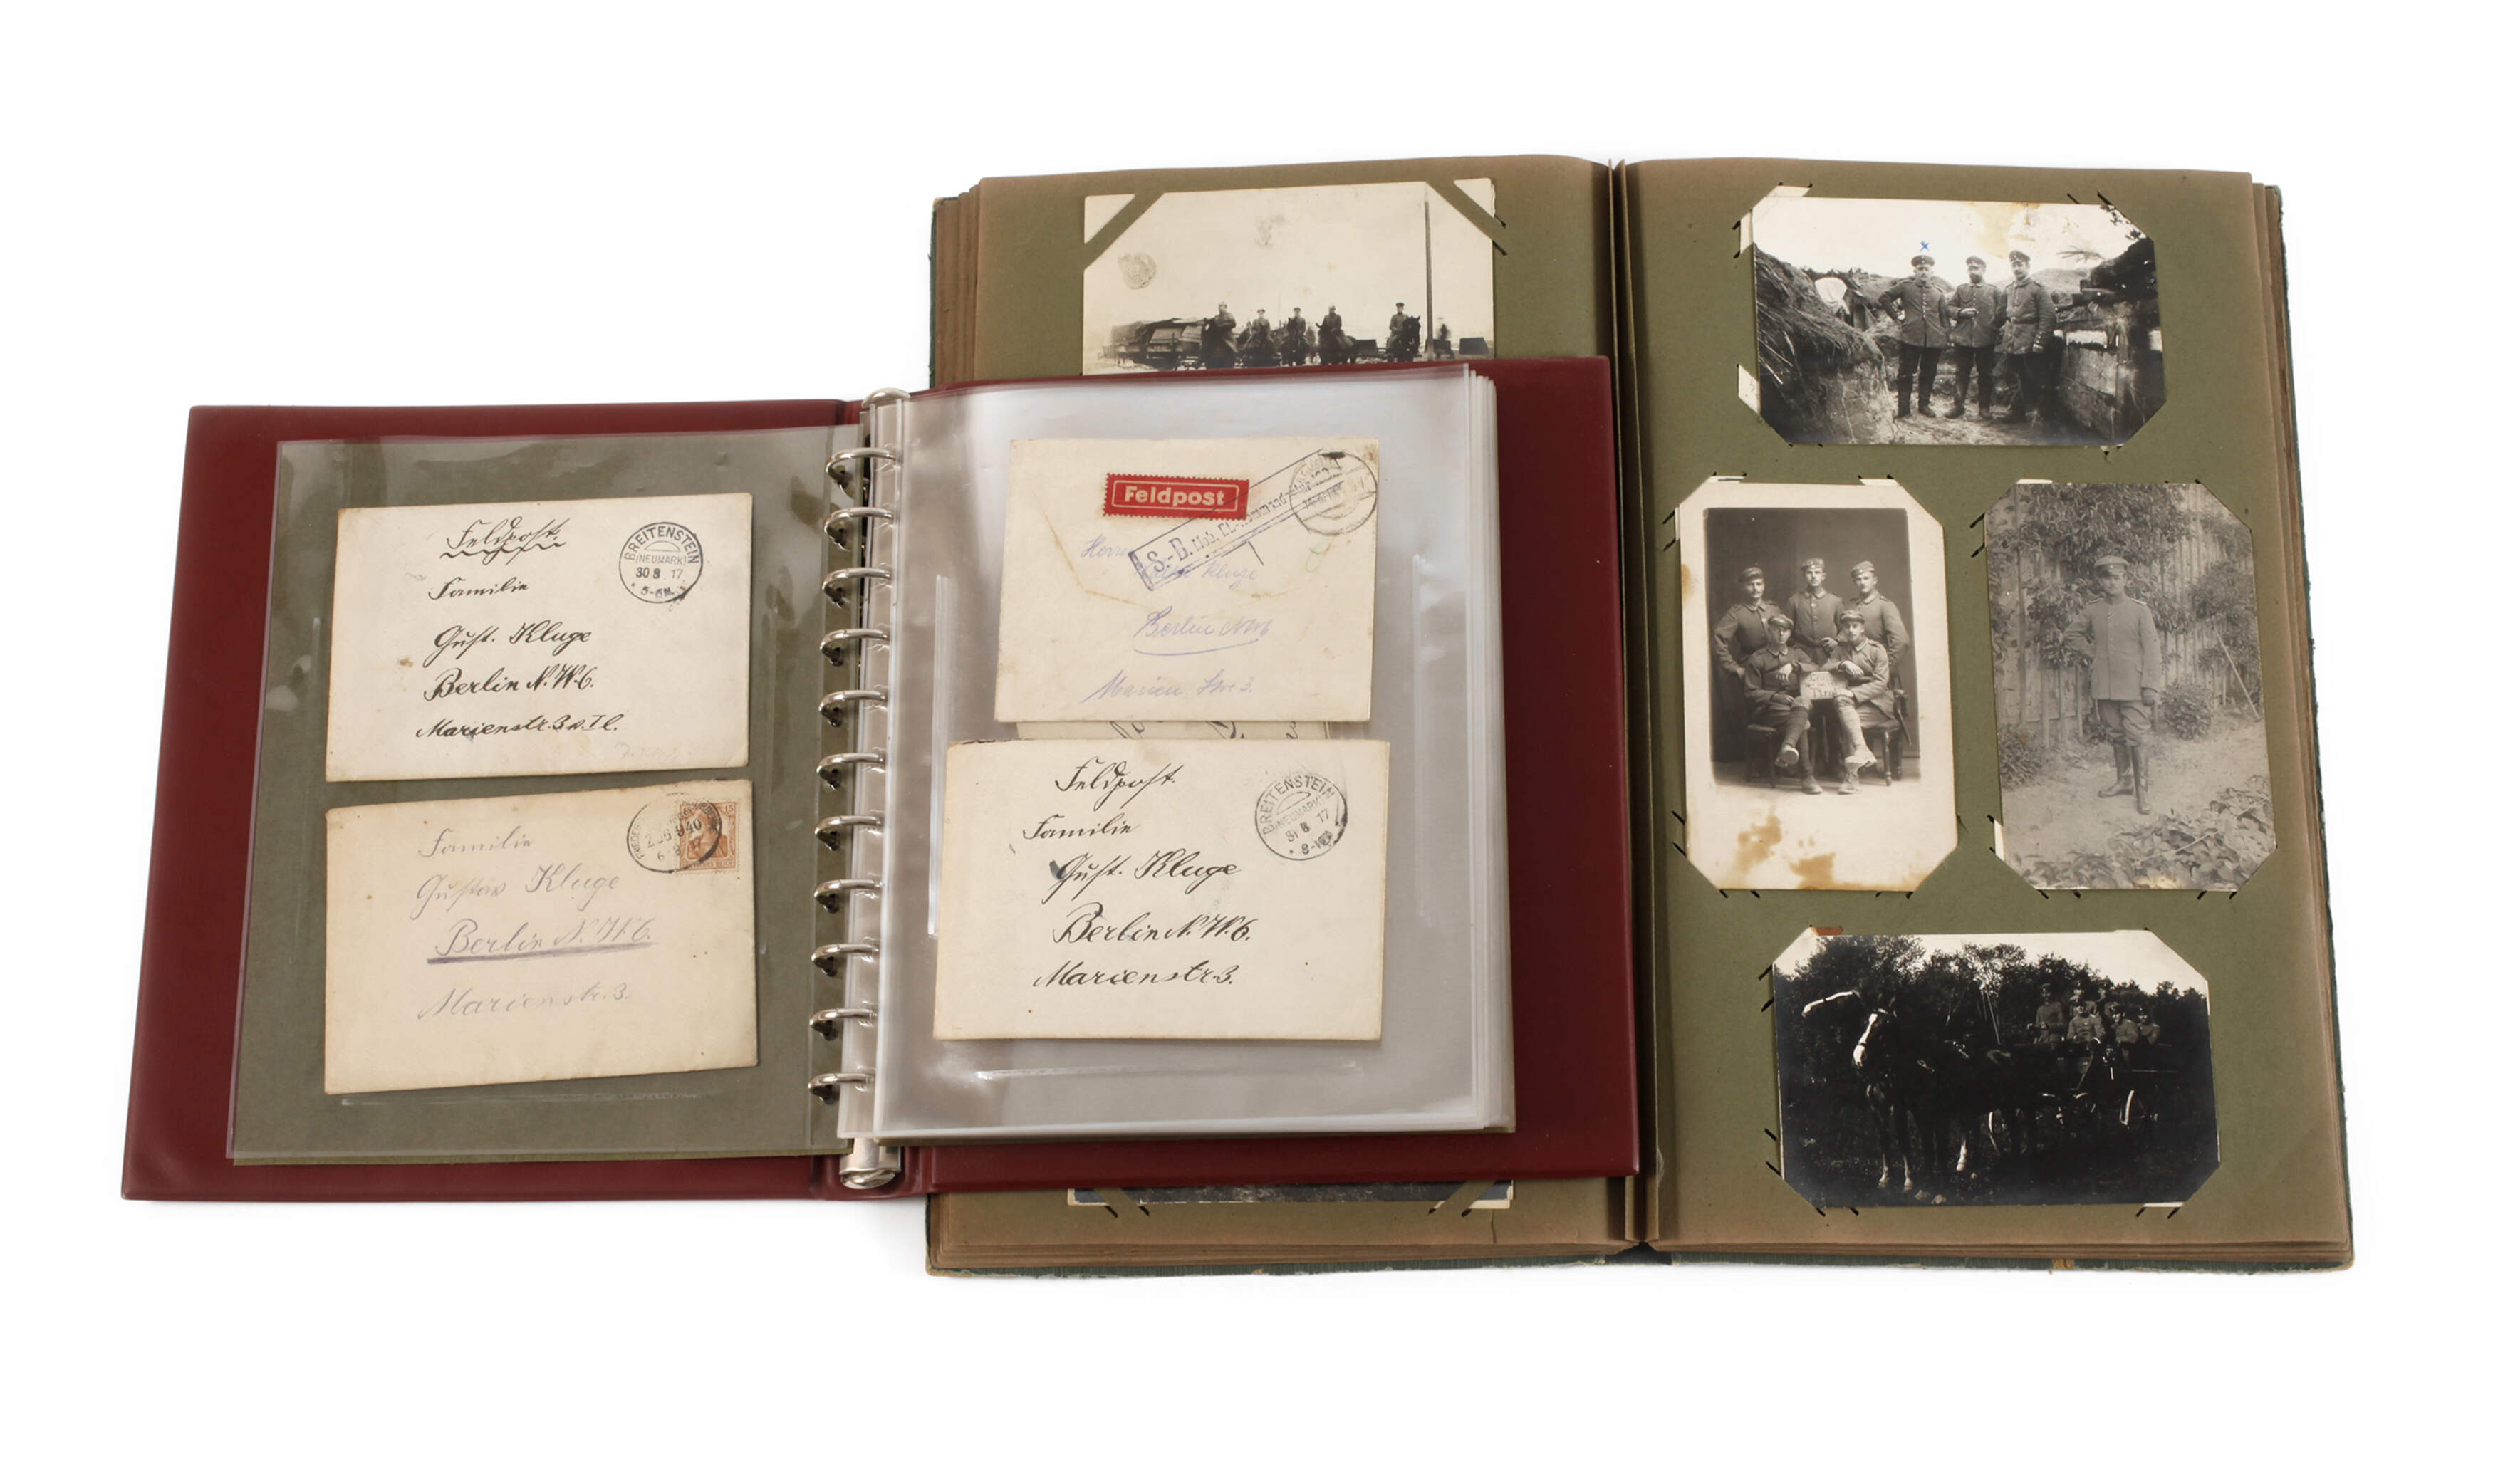 Feldpost.
BREITENSTEIN
(NEUMARK)
30 8 . 17
5-6N.
Familie
Gust. Kluge
Berlin N.W.6.
Marienstr. 3
Familie
Gustav Kluge
Berlin N.W.6.
Marienstr. 3.
Feldpost
S.-B.
Kluge
Berlin NW6
Marien Str 3.
Feldpost.
BREITENSTEIN
(NEUMARK)
31 8 17
Familie
Gust. Kluge
Berlin N.W.6.
Marienstr. 3.